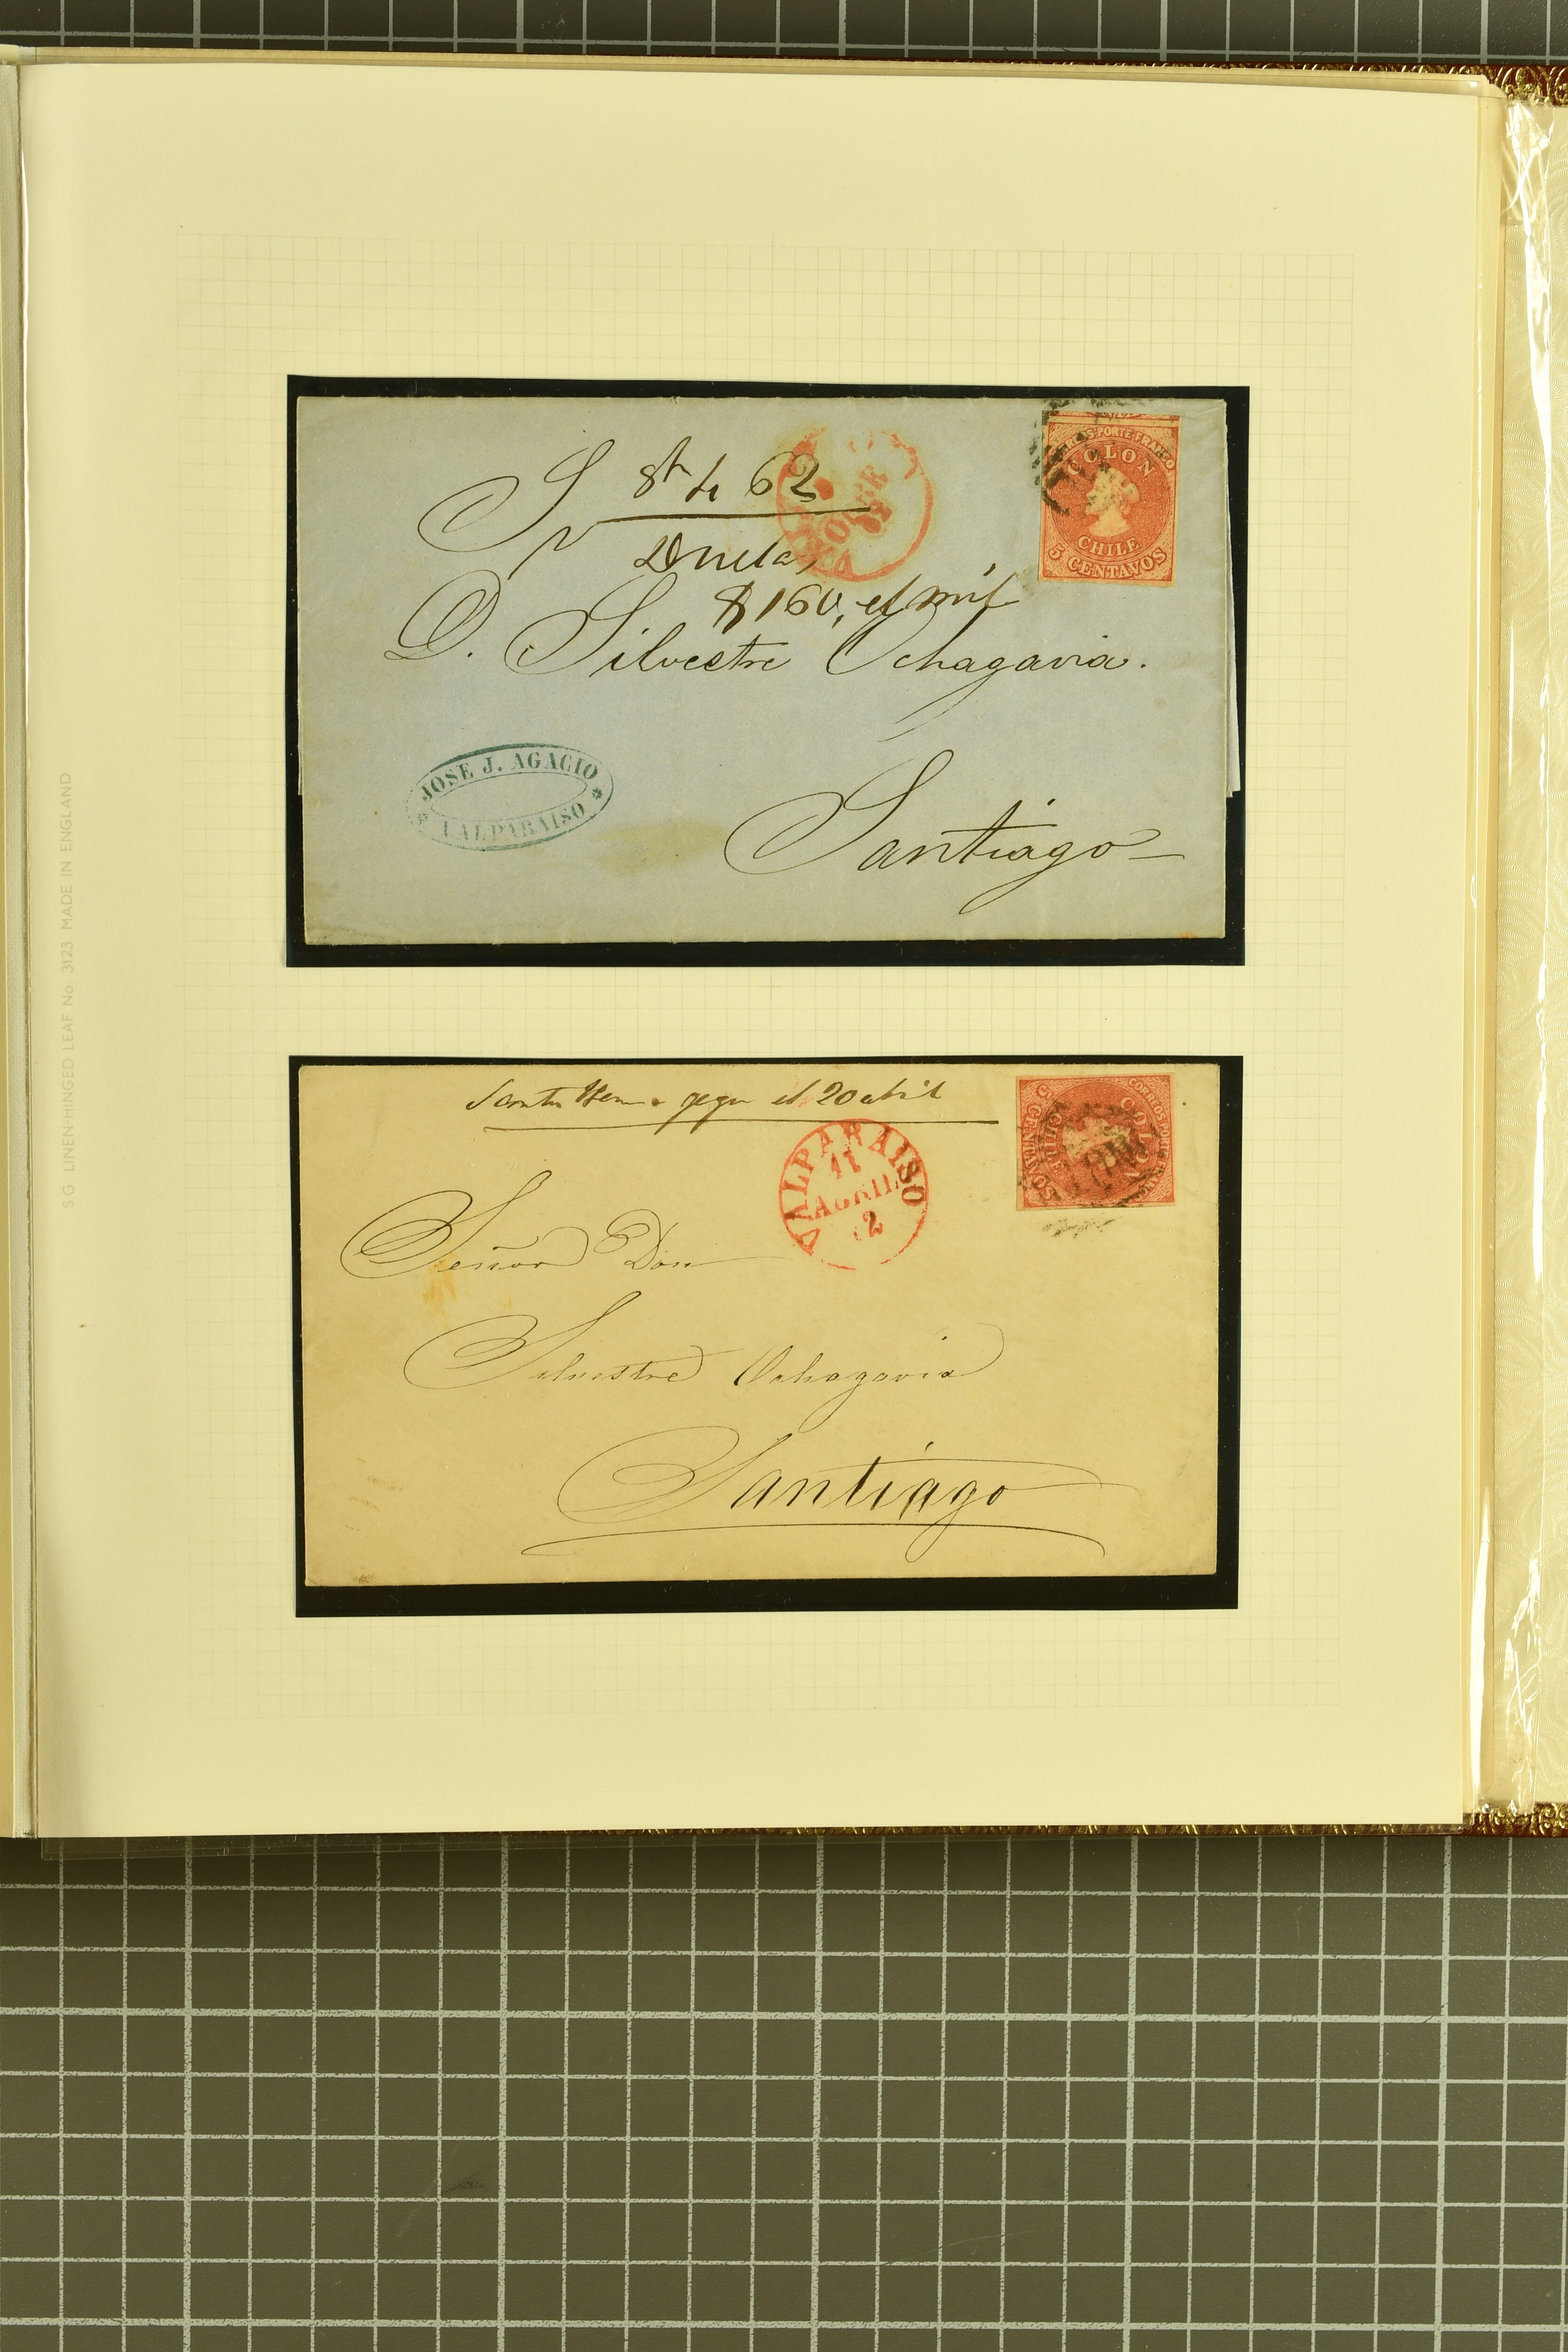 8 de 62
$160, el mil
S
D. Silvestre Ochagavia.
Santiago
JOSE J. AGACIO
VALPARAISO
CORREOS PORTE FRANCO
COLON
CHILE
5 CENTAVOS
el 20 abril
VALPARAISO
11
ABRIL
2
CORREOS PORTE FRANCO
COLON
CHILE
5 CENTAVOS
Señor Don
Silvestre Ochagavia
Santiago
SG LINEN-HINGED LEAF No. 3123 MADE IN ENGLAND